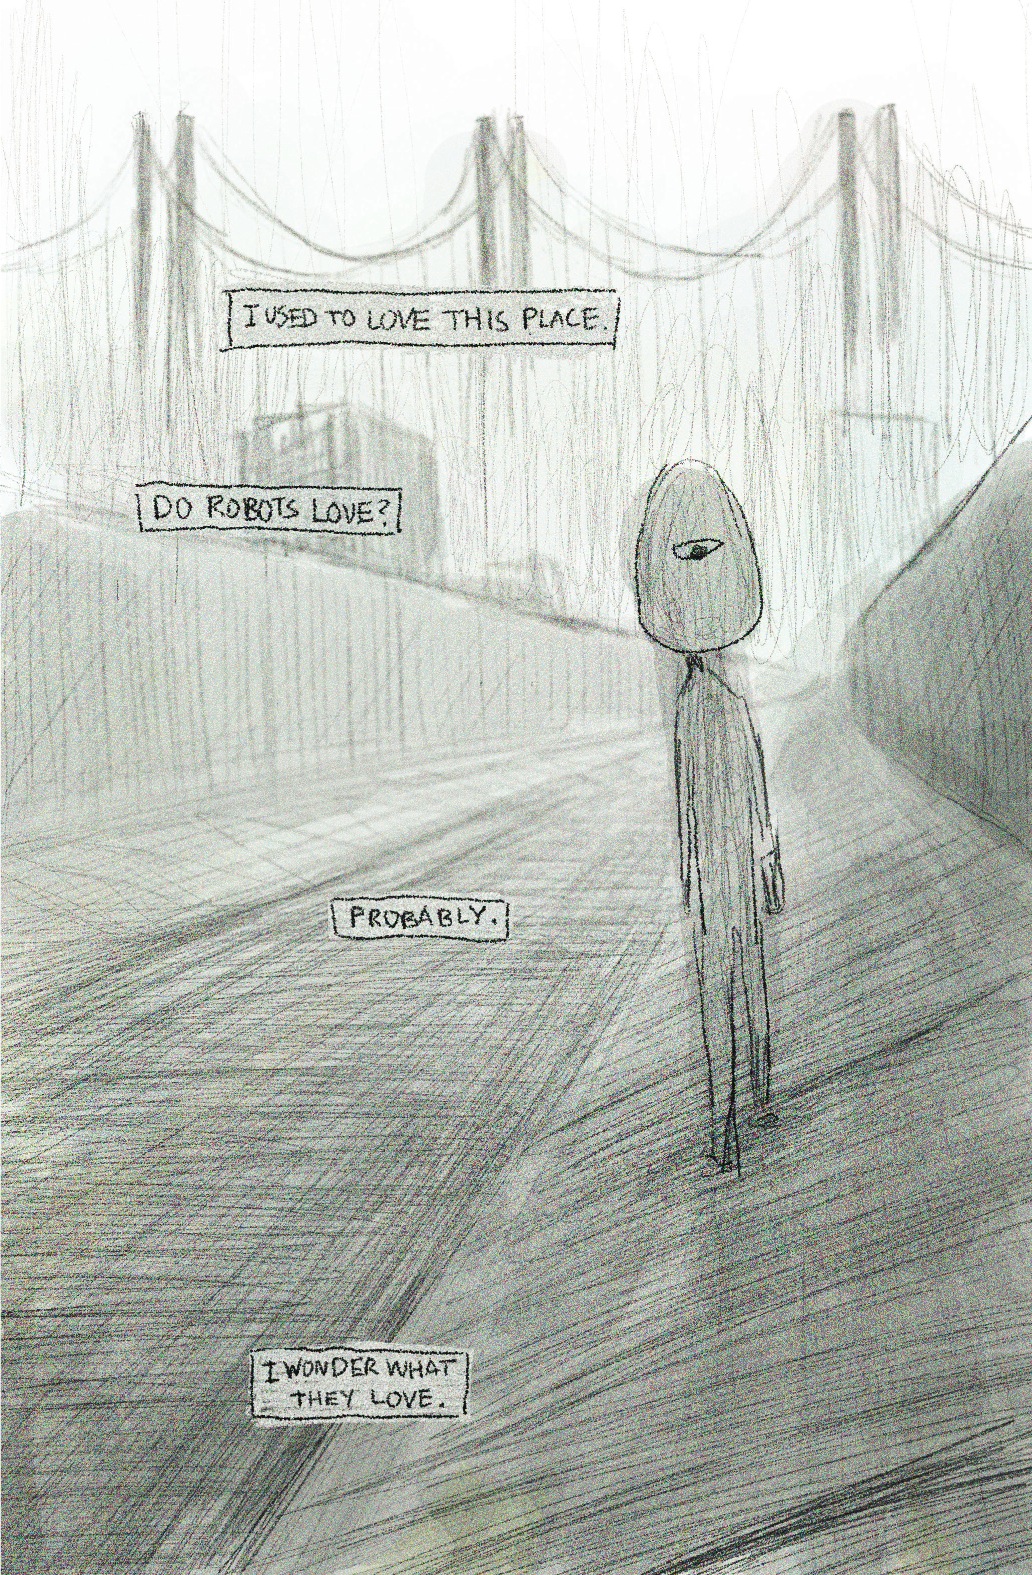 I USED TO LOVE THIS PLACE.
DO ROBOTS LOVE?
PROBABLY.
I WONDER WHAT
THEY LOVE.